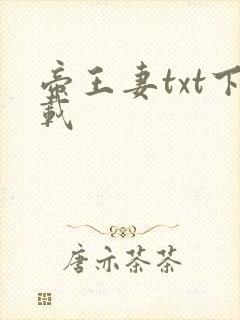 帝王妻txt下
载
唐亦茶茶